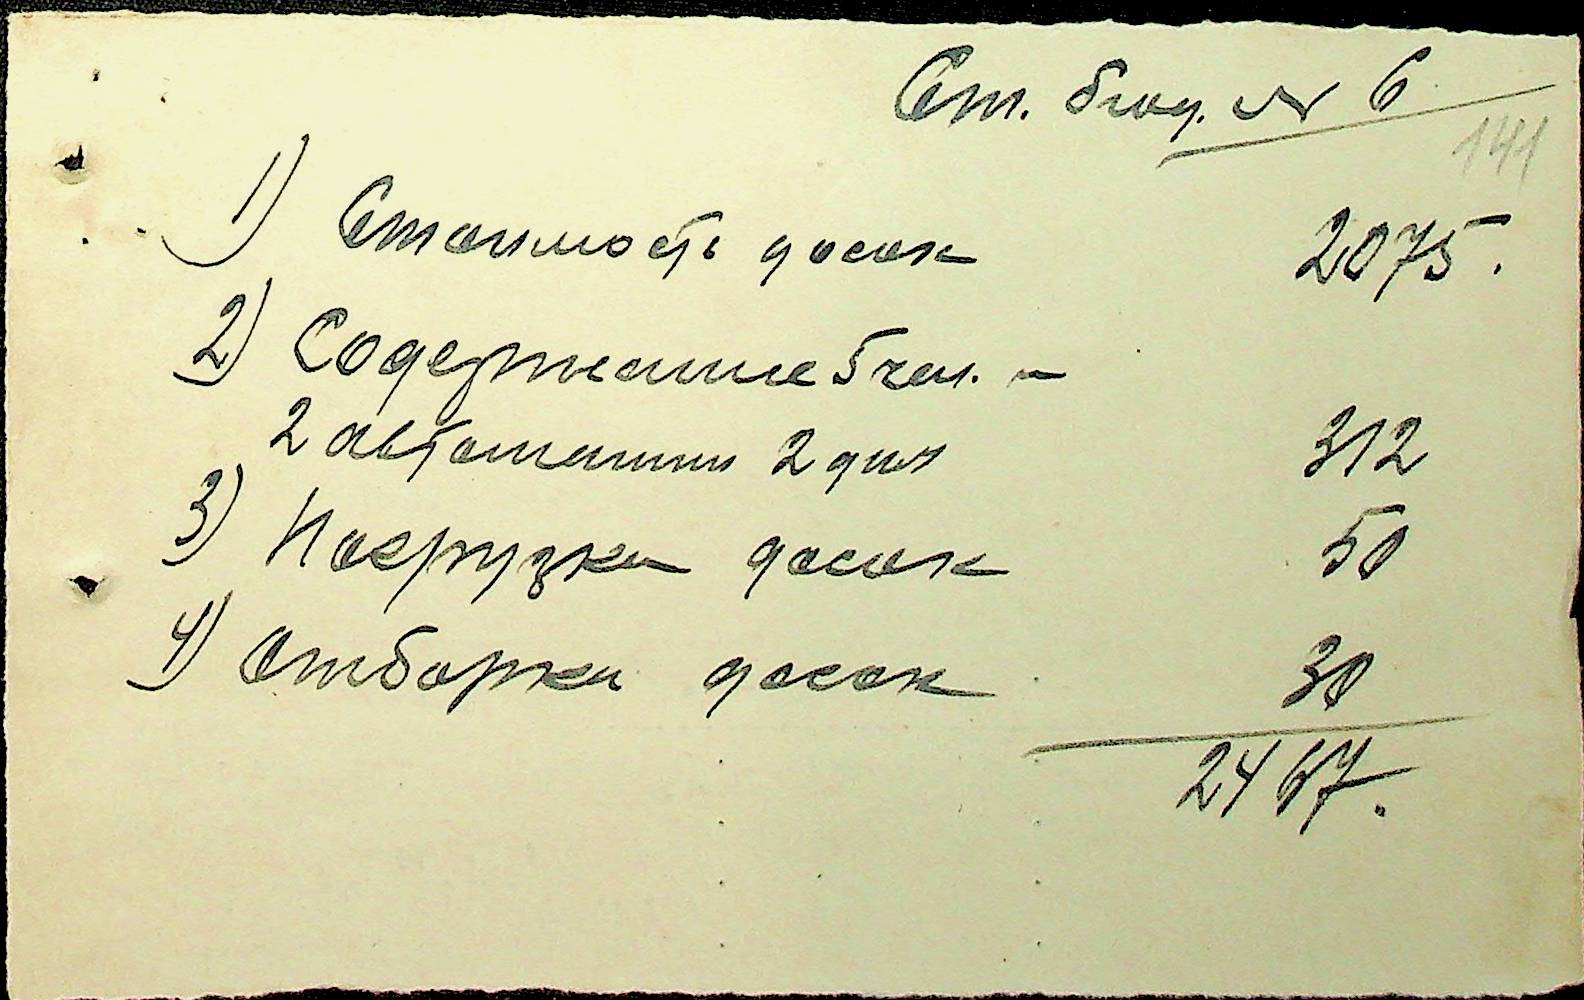 Ст. бюд. № 6
141
1) Стоимость досок 2075.
2) Содержание 5 чел. -
2 автомашин 2 дня 312
3) Погрузка досок 50
4) Отборка досок 30
2467.